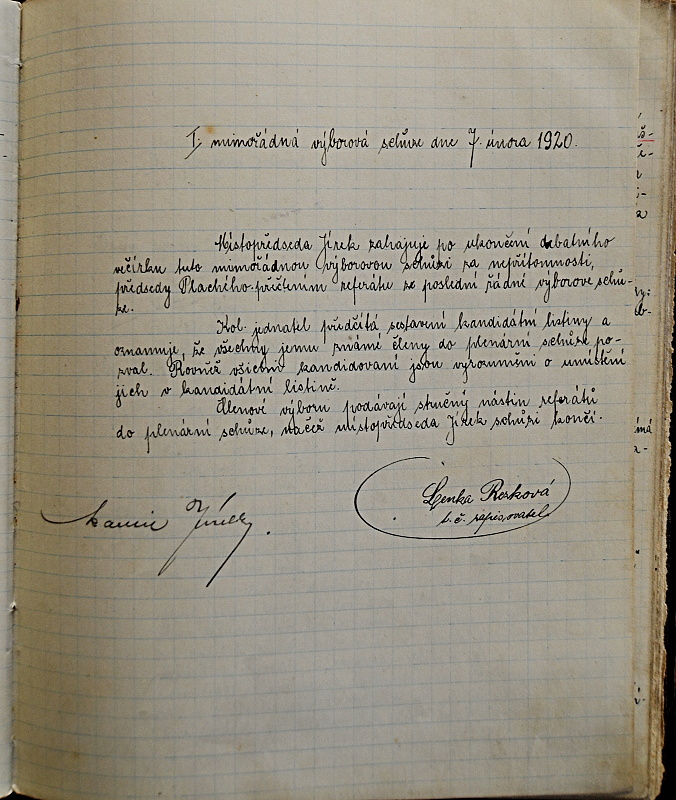 I. mimořádná výborová schůze dne 7. února 1920.
Místopředseda Jírek zahajuje po ukončení debatního
večírku tuto mimořádnou výborovou schůzi za nepřítomnosti,
předsedy Plachého přečtením referátu ze poslední řádné výborové schů-
ze.
Kol. jednatel předčítá sestavení kandidátní listiny a
oznamuje, že všechny jemu známé členy do plenární schůze po-
zval. Rovněž všichni kandidovaní jsou vyrozuměni o umístění
jich v kandidátní listině.
Členové výboru podávají stručný nástin referátů
do plenární schůze, načež místopředseda Jírek schůzi končí.
Lenka Rezková
t. č. zapisovatel.
Jírek.